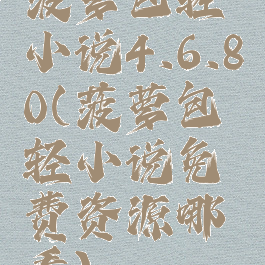 菠萝包轻
小说4.6.8
0(菠萝包
轻小说免
费资源哪
看)